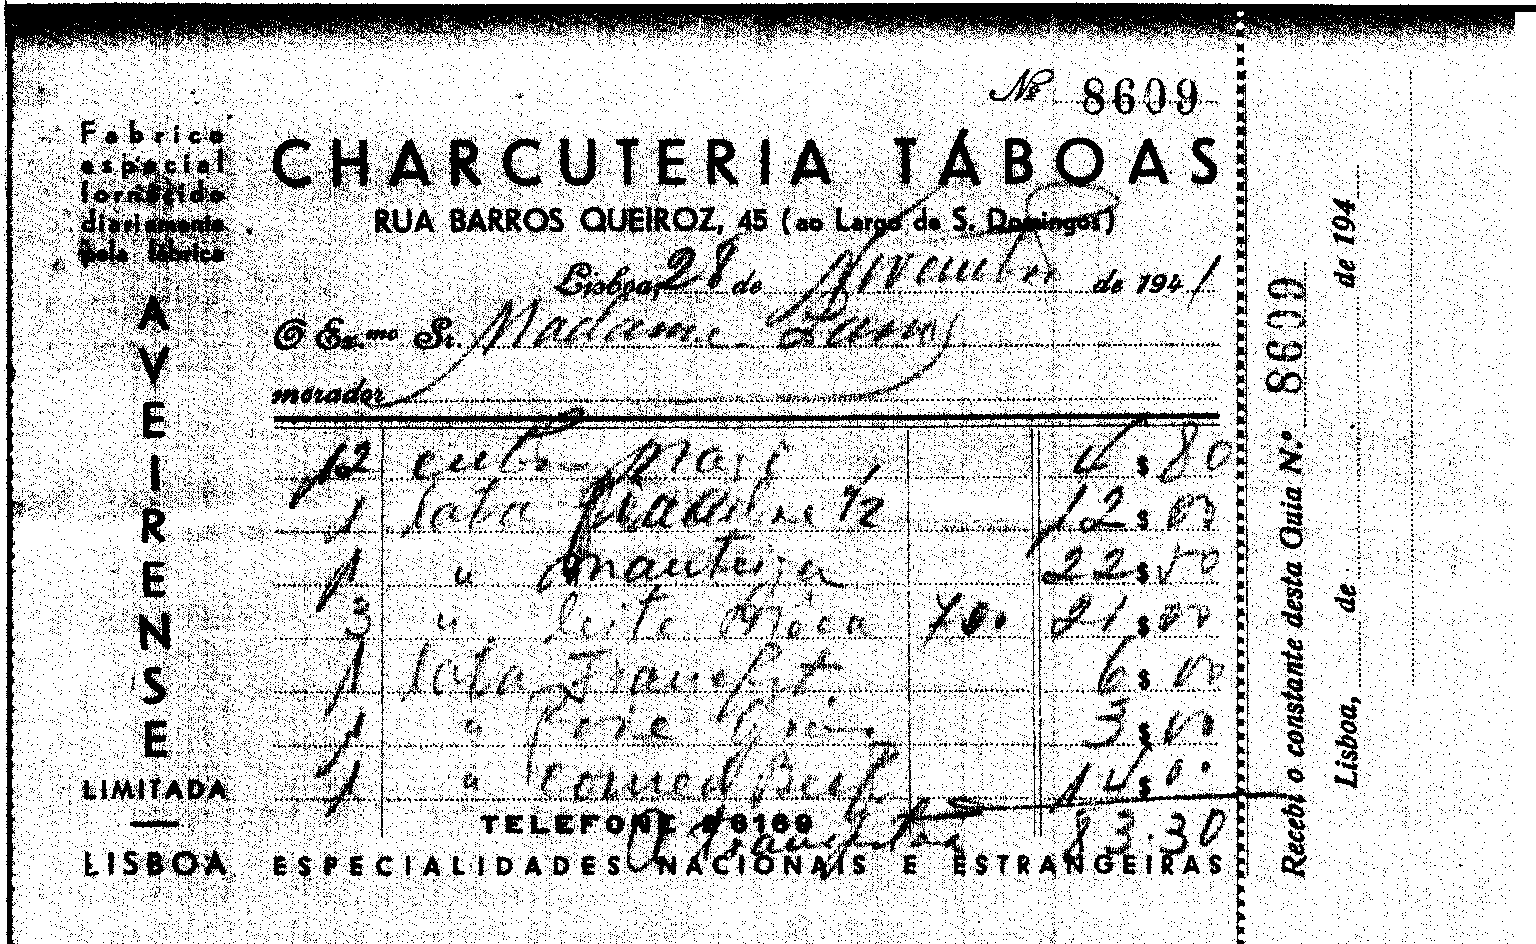 Nº 8609
Fabrico
especial
fornecido
diariamente
pela fábrica
AVEIRENSE
LIMITADA
LISBOA
CHARCUTERIA TÁBOAS
RUA BARROS QUEIROZ, 45 (ao Largo de S. Domingos)
Lisboa, 28 de Novembro de 1941
O Ex.mo Sr. Madame
morador
12 cubos 4$80
1 lata 1/2 12$00
1 " manteiga 22$50
3 " leite 7.00 21$00
1 lata Frankfurt. 6$00
1 " 3$00
1 " Corned Beef 14$00
83.30
TELEFONE 2 6169
ESPECIALIDADES NACIONAIS E ESTRANGEIRAS
Recebi o constante desta Guia N.º 8609
Lisboa, de de 194